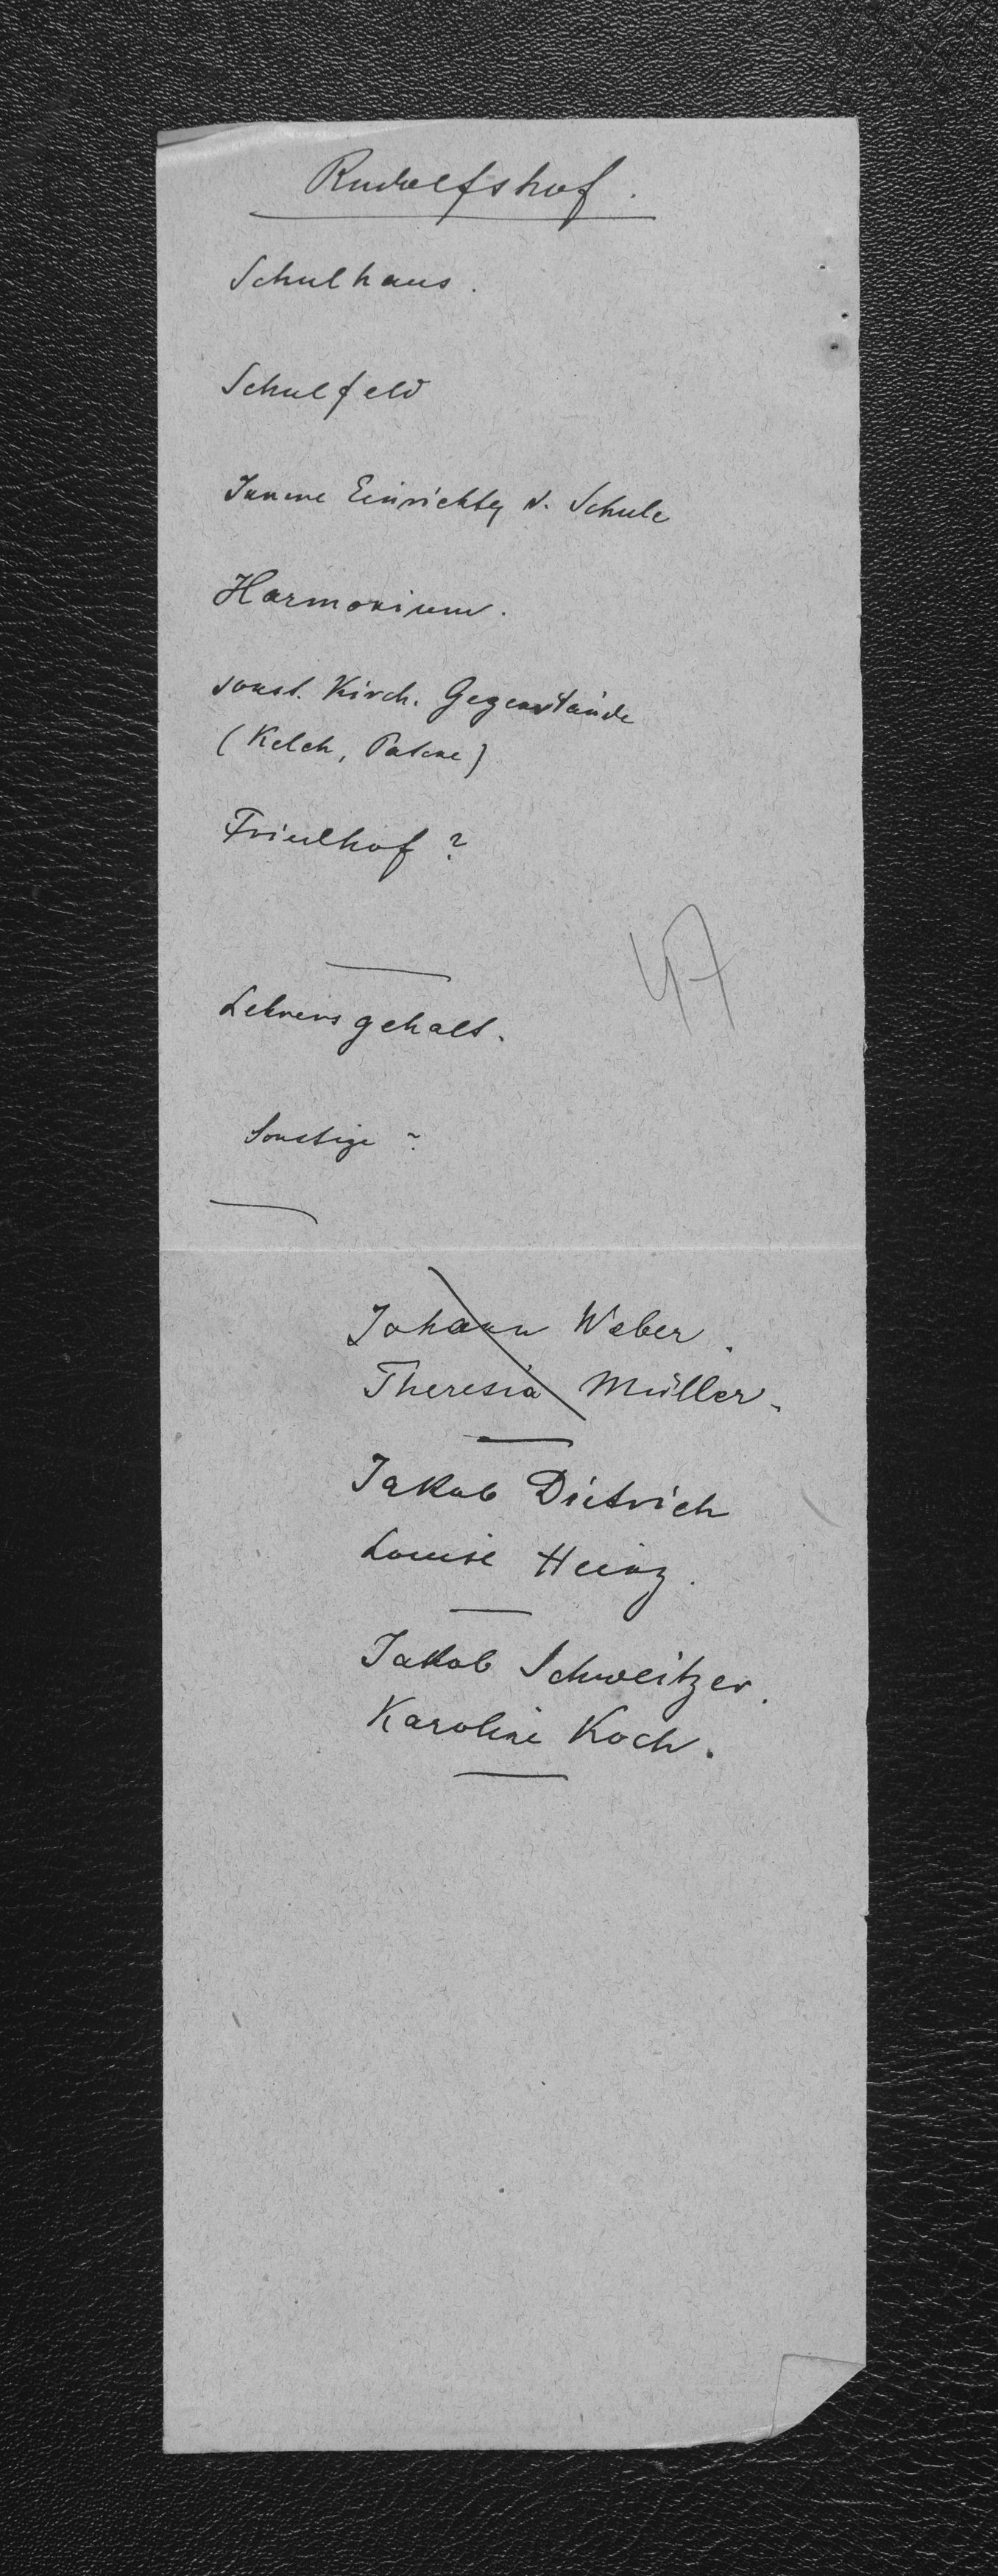 Rudolfshof.
Schulhaus.
Schulfeld
Innere Einrichtg d. Schule
Harmonium.
sonst. Kirch. Gegenstände
(Kelch, Patene)
Friedhof?
47
Lehrersgehalt.
Sonstige?
Johann Weber.
Theresia Müller.
Jakob Dietrich
Louise Heinz.
Jakob Schweitzer.
Karoline Koch.